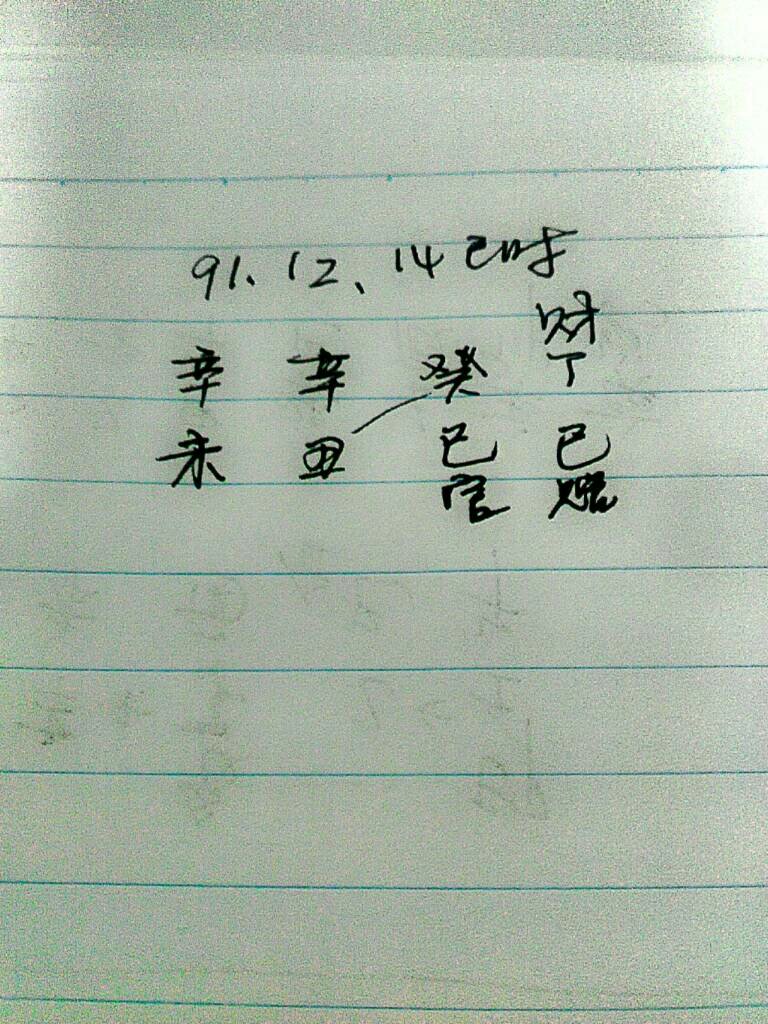 91、12、14巳时
财
辛 辛 癸 丁
未 丑 巳 巳
官